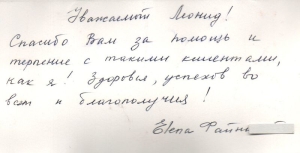 Уважаемый Леонид!
Спасибо Вам за помощь и
терпение с такими клиентами,
как я! Здоровья, успехов во
всём и благополучия!
Елена